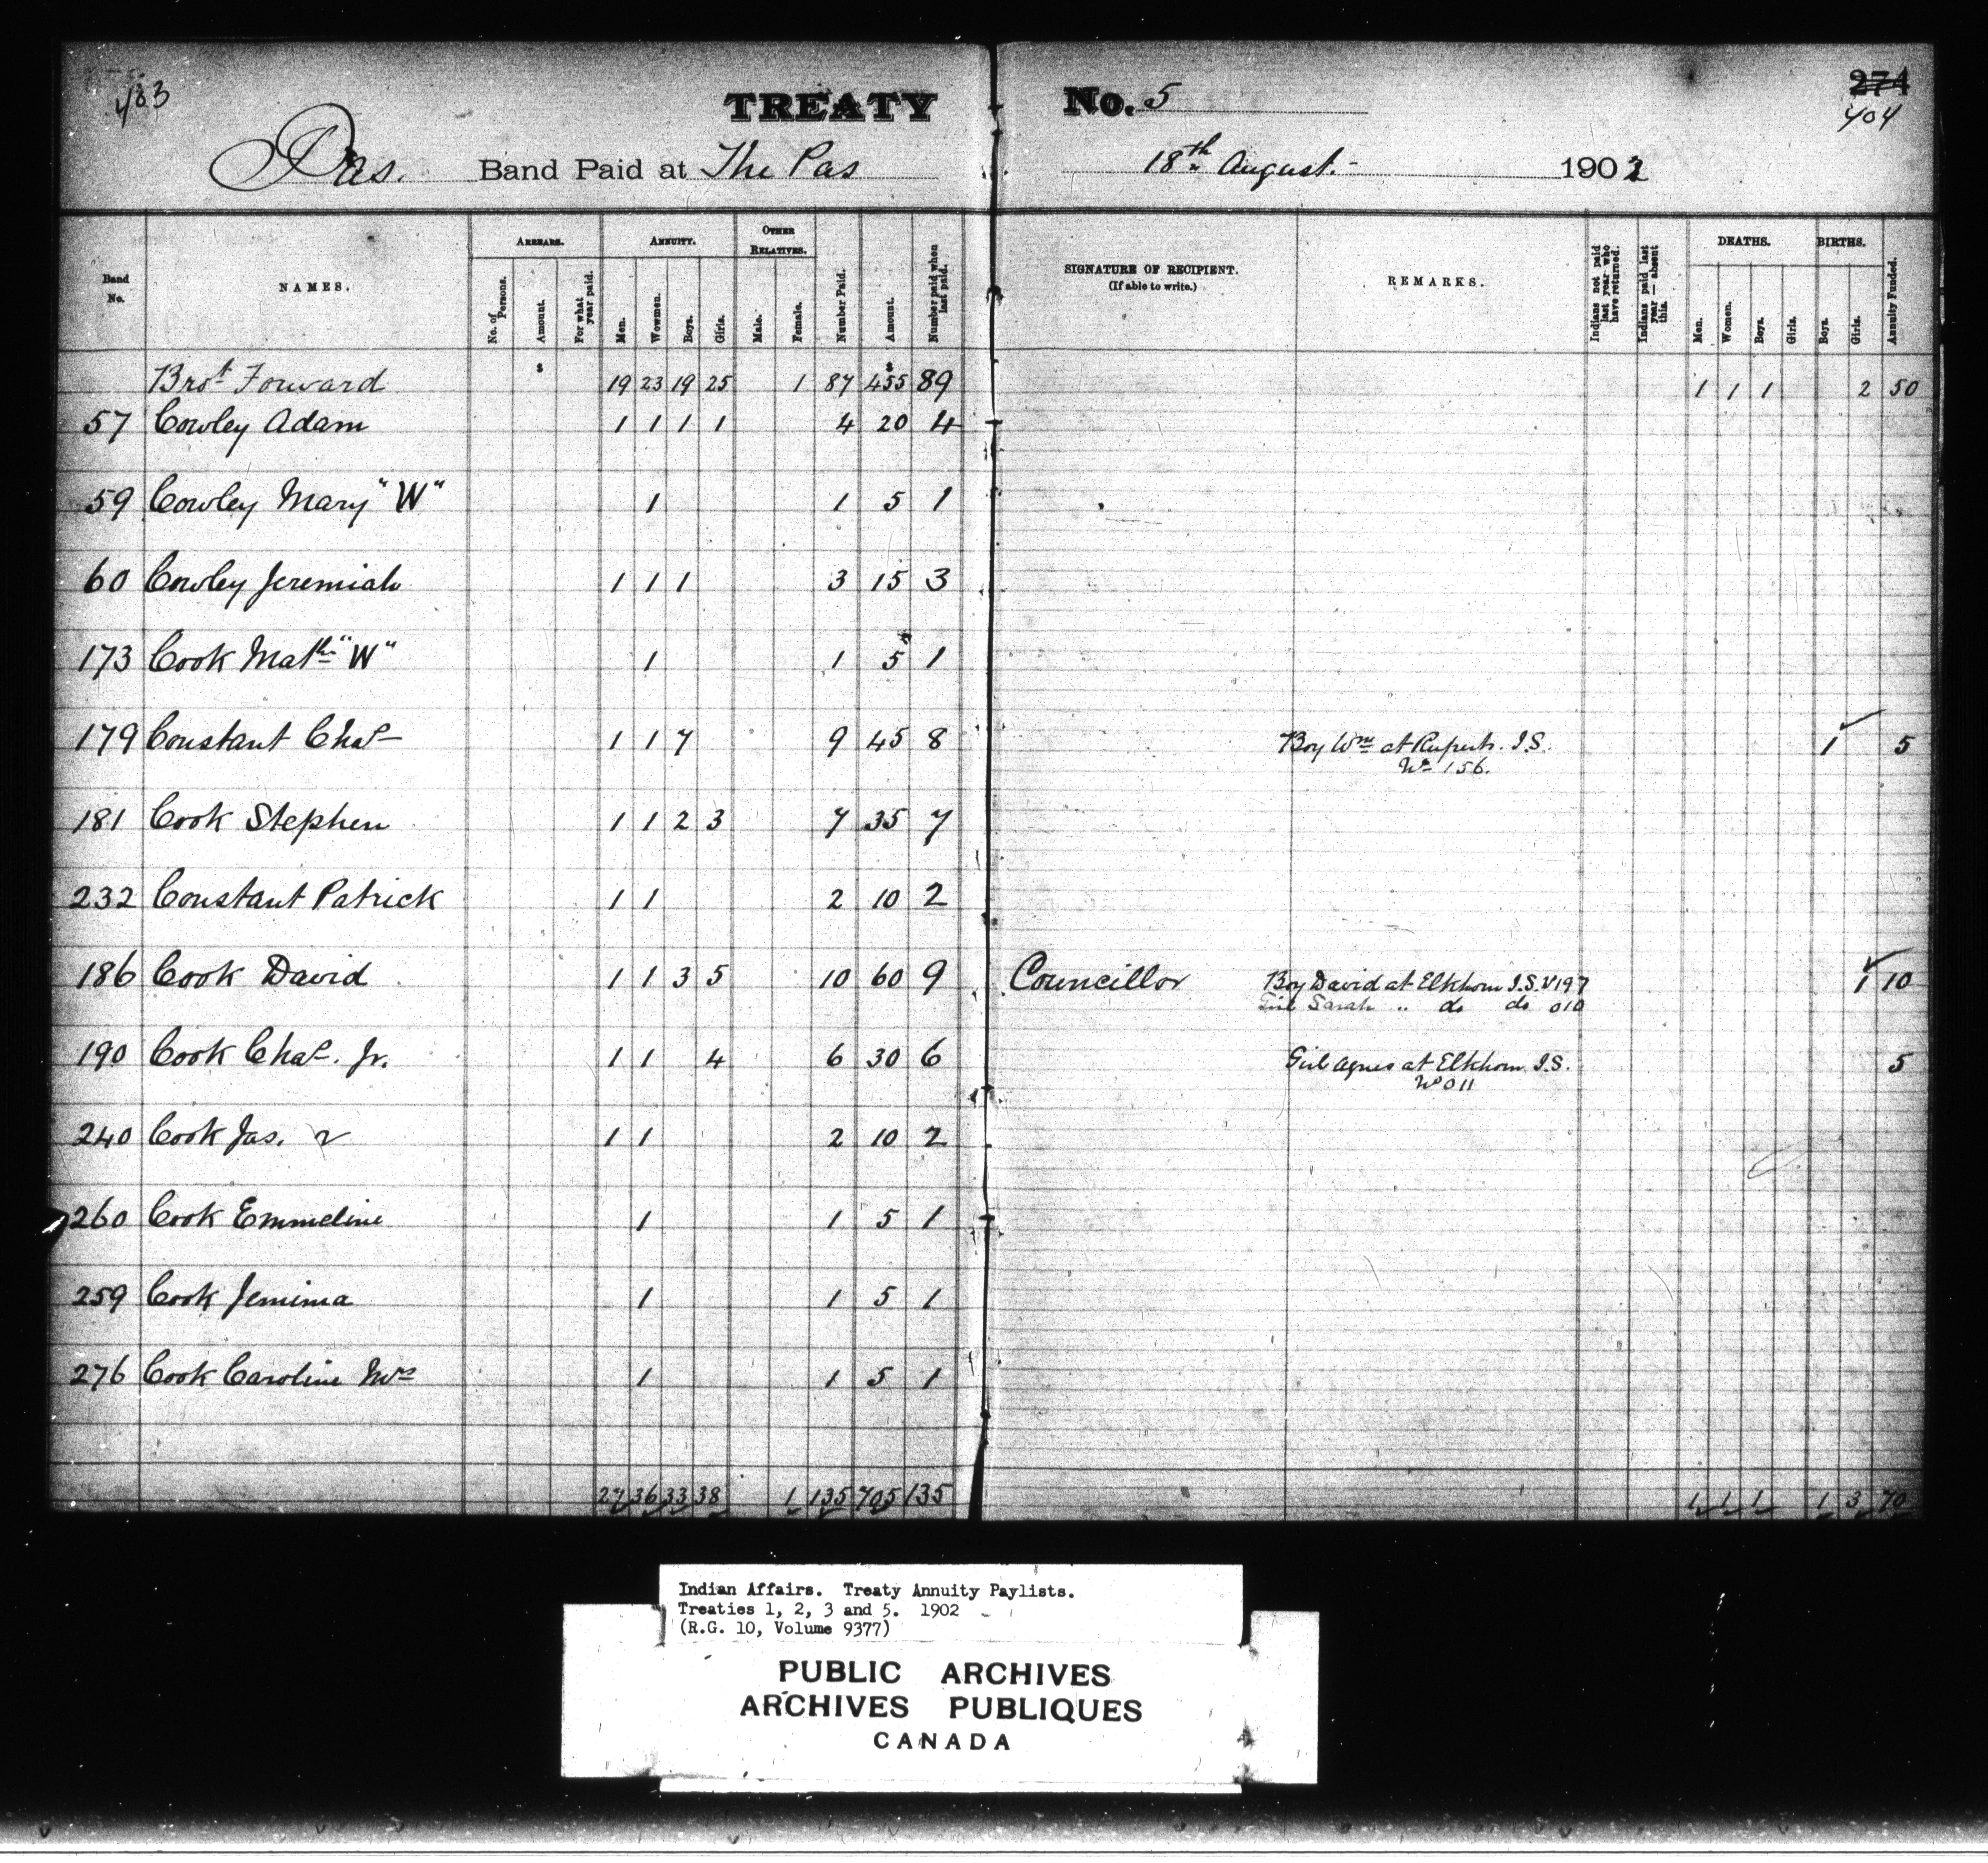 403
TREATY No. 5
274
404
Pas. Band Paid at The Pas 18th August. 1902
Band No. NAMES. ARREARS. No. of Persons. Amount. For what year paid. ANNUITY. Men. Wowmen. Boys. Girls. OTHER RELATIVES. Male. Female. Number Paid. Amount. Number paid when last paid. SIGNATURE OF RECIPIENT. (If able to write.) REMARKS. Indians not paid last year who have returned. Indians paid last year — absent this. DEATHS. Men. Women. Boys. Girls. BIRTHS. Boys. Girls. Annuity Funded.
$ $
Brot Forward 19 23 19 25 1 87 455 89 1 1 1 2 50
57 Cowley Adam 1 1 1 1 4 20 4
59 Cowley Mary "W" 1 1 5 1
60 Cowley Jeremiah 1 1 1 3 15 3
173 Cook Matth "W" 1 1 5 1
179 Constant Chas 1 1 7 9 45 8 Boy Wm at Ruperts. I.S. 1 5
No 156.
181 Cook Stephen 1 1 2 3 7 35 7
232 Constant Patrick 1 1 2 10 2
186 Cook David 1 1 3 5 10 60 9 Councillor Boy David at Elkhorn I.S. 197 1 10
Girl Sarah " do do 010
190 Cook Chas. Jr. 1 1 4 6 30 6 Girl Agnes at Elkhorn I.S. 5
No 011
240 Cook Jas. 2 1 1 2 10 2
260 Cook Emmeline 1 1 5 1
259 Cook Jemima 1 1 5 1
276 Cook Caroline Mrs 1 1 5 1
27 36 33 38 1 135 705 135 1 1 1 1 3 70
Indian Affairs. Treaty Annuity Paylists.
Treaties 1, 2, 3 and 5. 1902
(R.G. 10, Volume 9377)
PUBLIC ARCHIVES
ARCHIVES PUBLIQUES
CANADA